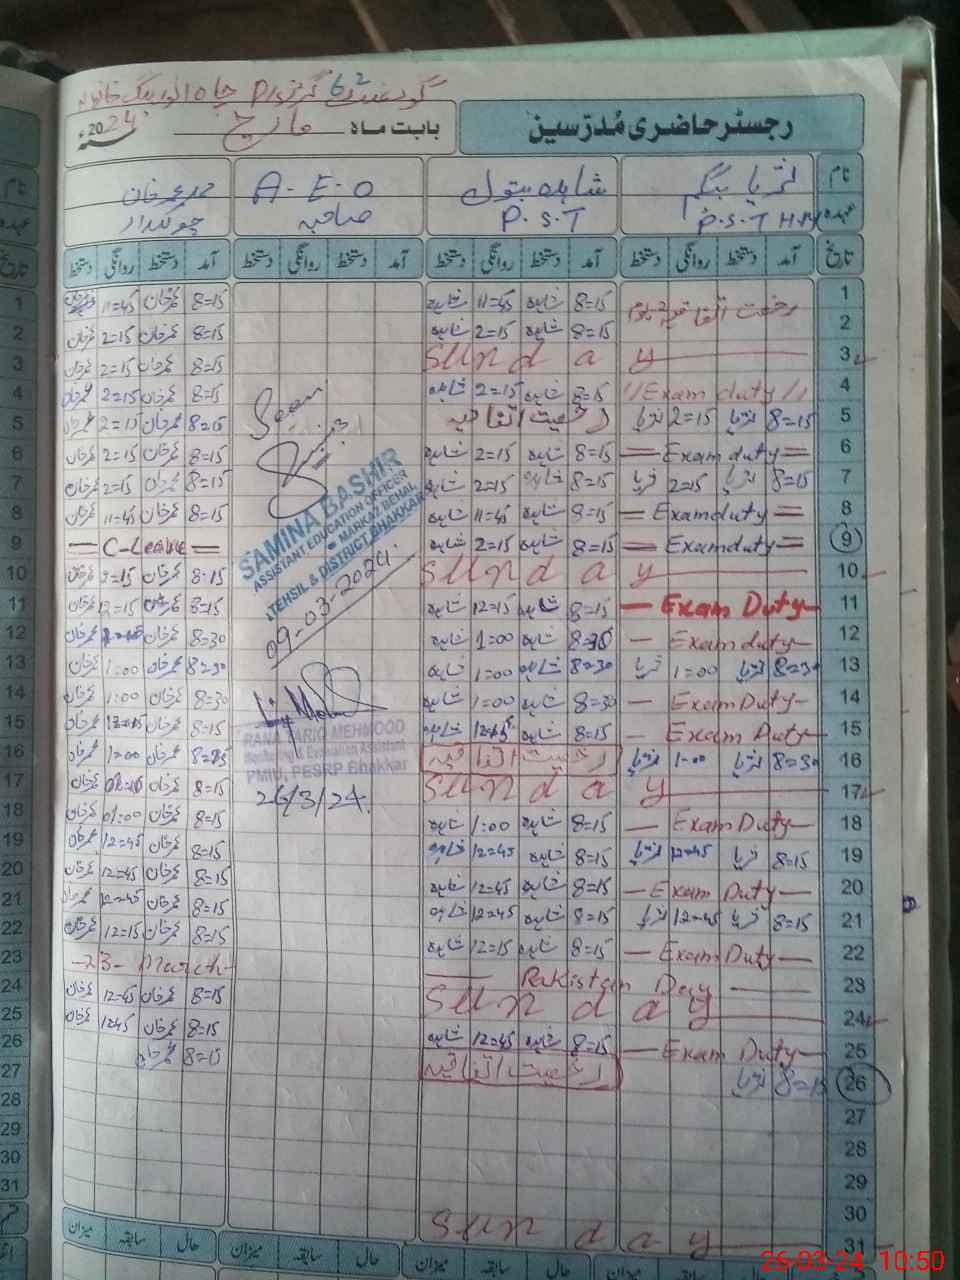 رجسٹر حاضری مُدرّسین
بابت ماہ مارچ 2024ء
نام ثریا بیگم شاہدہ بتول A-E-O محمد عمر خان
عہدہ P.S.T H.M P.S.T صاحبہ چوکیدار
تاریخ آمد دستخط روانگی دستخط آمد دستخط روانگی دستخط آمد دستخط روانگی دستخط آمد دستخط روانگی دستخط
1 رخصت اتفاقیہ 8=15 شاہدہ 11=45 شاہدہ 8=15 عمرخان 11=45
2 8=15 شاہدہ 2=15 شاہدہ 8=15 عمرخان 2=15 عمرخان
3 Sunday 8=15 عمرخان 2=15 عمرخان
4 // Exam duty // 8=15 شاہدہ 2=15 شاہدہ 8=15 عمرخان 2=15 عمرخان
5 8=15 ثریا 2=15 ثریا رخصت اتفاقیہ 8=15 عمرخان 2=15 عمرخان
6 = Exam duty = 8=15 شاہدہ 2=15 شاہدہ 8=15 عمرخان 2=15 عمرخان
7 8=15 ثریا 2=15 ثریا 8=15 شاہدہ 2=15 شاہدہ 8=15 عمرخان 2=15 عمرخان
8 = Exam duty = 8=15 شاہدہ 11=45 شاہدہ 8=15 عمرخان 11=45 عمرخان
9 = Exam duty = 8=15 شاہدہ 2=15 شاہدہ = C-Leave =
10 Sunday 8=15 عمرخان 2=15 عمرخان
11 — Exam Duty — 8=15 شاہدہ 12=15 شاہدہ 8=15 عمرخان 12=15 عمرخان
12 — Exam duty — شاہدہ 1=00 شاہدہ 8=30 عمرخان عمرخان
13 8=30 ثریا 1=00 ثریا 8=30 شاہدہ 1=00 شاہدہ 8=30 عمرخان 1:00 عمرخان
14 — Exam Duty — 8=30 شاہدہ 1=00 شاہدہ 8=30 عمرخان 1:00 عمرخان
15 — Exam Duty — 8=15 شاہدہ شاہدہ 8=15 عمرخان عمرخان
16 8=30 ثریا 1=00 ثریا رخصت اتفاقیہ عمرخان 1=00 عمرخان
17 Sunday 8=15 عمرخان عمرخان
18 — Exam Duty — 8=15 شاہدہ 1:00 شاہدہ 8=15 عمرخان 01:00 عمرخان
19 8=15 ثریا 12=45 ثریا 8=15 شاہدہ 12=45 شاہدہ 8=15 عمرخان 12=45 عمرخان
20 — Exam Duty — 8=15 شاہدہ 12=45 شاہدہ 8=15 عمرخان 12=45 عمرخان
21 8=15 ثریا 12=45 ثریا 8=15 شاہدہ 12=45 شاہدہ 8=15 عمرخان 12=45 عمرخان
22 — Exam Duty — 8=15 شاہدہ 12=15 شاہدہ 8=15 عمرخان 12=15 عمرخان
23 — Pakistan Day — -23- March-
24 Sunday 8=15 عمرخان 12=45 عمرخان
25 — Exam Duty — 8=15 شاہدہ 12=45 شاہدہ 8=15 عمرخان 1245 عمرخان
26 8=15 ثریا رخصت اتفاقیہ 8=15 عمرخان
27
28
29
30
31 Sunday
Seen
SAMINA BASHIR
ASSISTANT EDUCATION OFFICER
MARKAZ BEHAL
TEHSIL & DISTRICT BHAKKAR
09-03-2024.
RANA TARIQ MEHMOOD
Monitoring & Evaluation Assistant
PMIU, PESRP Bhakkar
26/3/24.
حال سابقہ میزان حال سابقہ میزان حال سابقہ میزان حال سابقہ میزان
نام
عہدہ
تاریخ
1
2
3
4
5
6
7
8
9
10
11
12
13
14
15
16
17
18
19
20
21
22
23
24
25
26
27
28
29
30
31
26-03-24 10:50